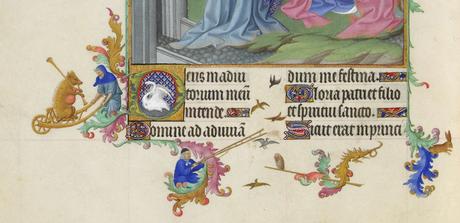 Deus in adiu
torium meū
intende.
Domine ad adiuvā
dum me festina.
Gloria patri et filio
et spiritui sancto.
Sicut erat in princi